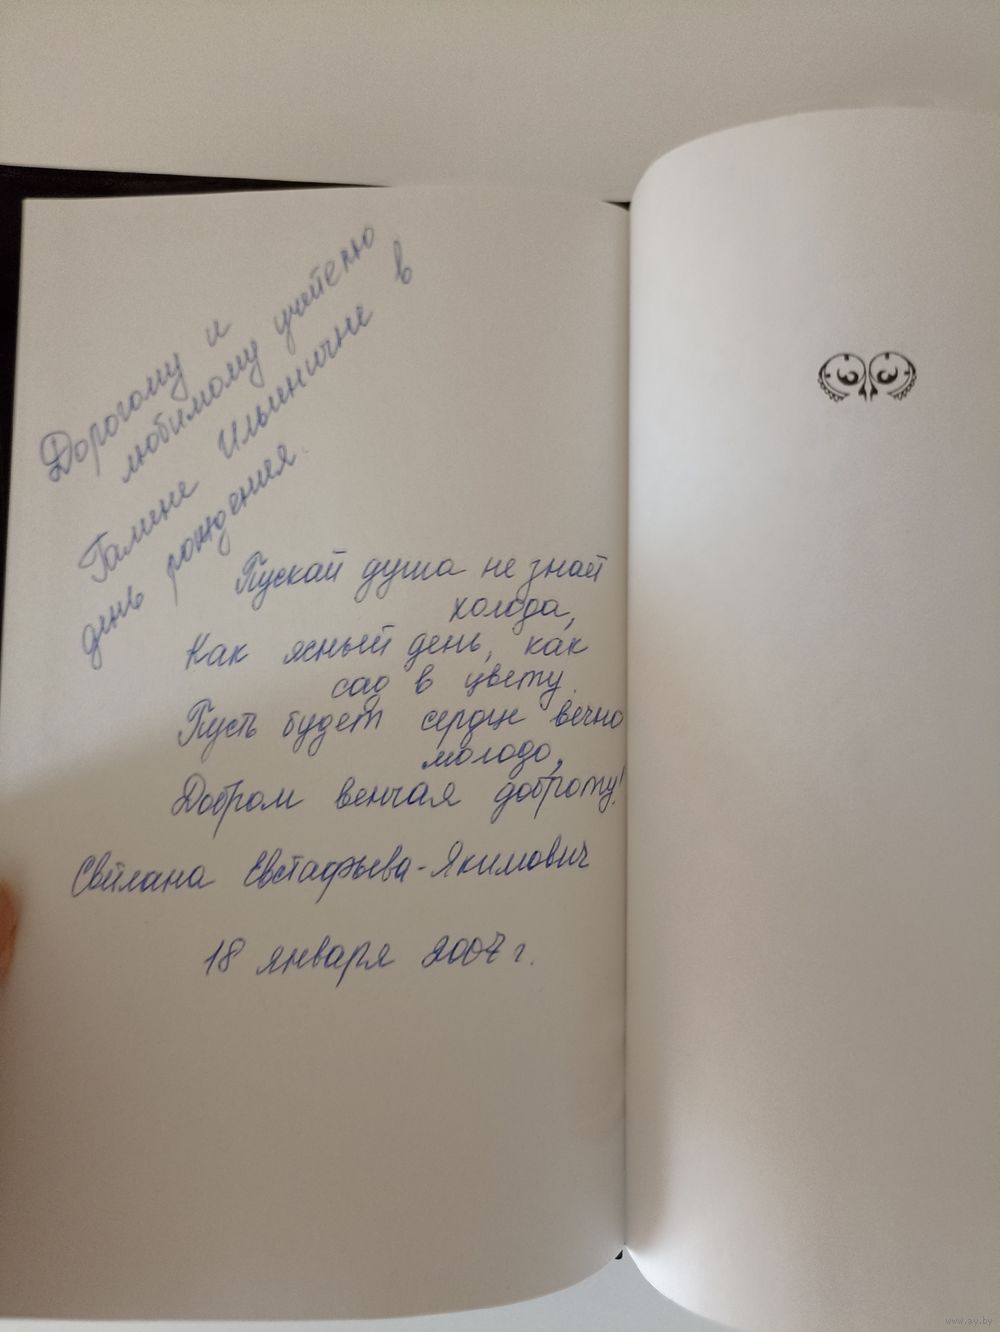 Дорогому и
любимому учителю
Галине Ильиничне в
день рождения.
Пускай душа не знает
холода,
Как ясный день, как
сад в цвету.
Пусть будет сердце вечно
молодо,
Добром венчая доброту!
Светлана Евстафьева-Якимович
18 января 2007 г.
www.ay.by